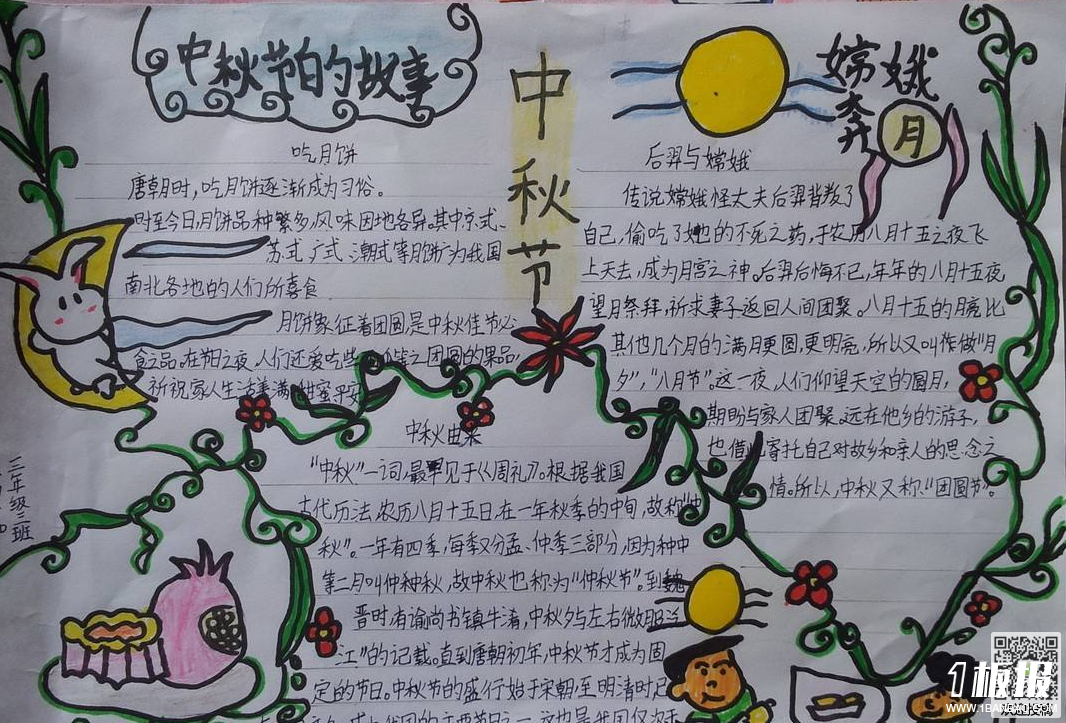 中秋节的故事
吃月饼
唐朝时，吃月饼逐渐成为习俗。
时至今日，月饼品种繁多，风味因地各异。其中京式、
苏式、广式、潮式等月饼广为我国
南北各地的人们所喜食
月饼象征着团圆是中秋佳节必
食之品。在节日之夜，人们还爱吃些
之团圆的果品，
祈祝家人生活美满、甜蜜平安
中秋节
嫦娥
奔
月
后羿与嫦娥
传说嫦娥怪丈夫后羿背叛了
自己，偷吃了她的不死之药，于农历八月十五之夜飞
上天去，成为月宫之神。后羿后悔不已，年年的八月十五夜
望月祭拜，祈求妻子返回人间团聚。八月十五的月亮比
其他几个月的满月更圆，更明亮，所以又叫作做“月
夕”，“八月节”。这一夜，人们仰望天空的圆月，
期盼与家人团聚。远在他乡的游子，
也借此寄托自己对故乡和亲人的思念之
情。所以，中秋又称“团圆节”。
中秋由来
“中秋”一词，最早见于《周礼》。根据我国
古代历法，农历八月十五日，在一年秋季的中旬，故称“中
秋”。一年有四季，每季又分孟、仲、季三部分，因为种中
第二月叫仲种秋，故中秋也称为“仲秋节”。到魏
晋时，有谕尚书镇牛渚，中秋夕与左右微服
江”的记载。直到唐朝初年，中秋节才成为固
定的节日。中秋节的盛行始于宋朝，至明清时
三年级三班
1板报
WWW.1BANBAO.COM